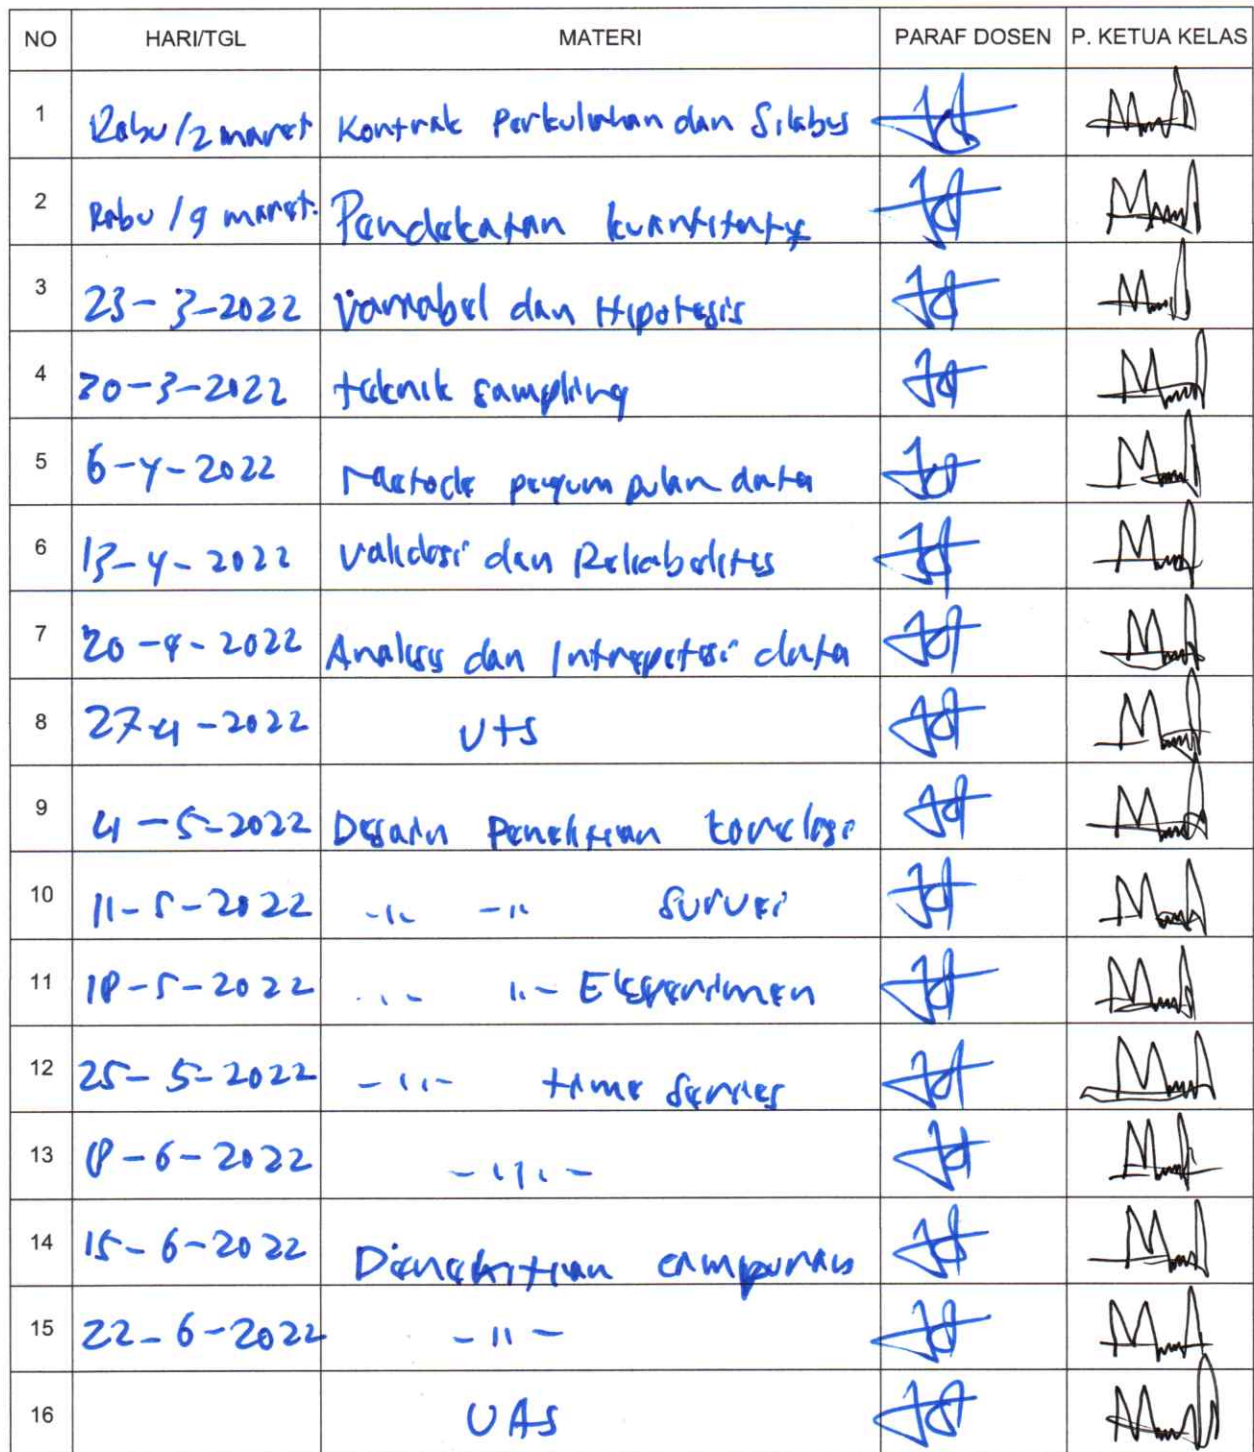 NO HARI/TGL MATERI PARAF DOSEN P. KETUA KELAS
1 Rabu/2 maret Kontrak Perkuliahan dan Silabus
2 Rabu/9 maret. Pendekatan kuantitatif
3 23-3-2022 Variabel dan Hipotesis
4 30-3-2022 teknik sampling
5 6-4-2022 Metode pengumpulan data
6 13-4-2022 Validasi dan Reliabelitas
7 20-4-2022 Analisis dan Intrepetasi data
8 27-4-2022 UTS
9 4-5-2022 Desain Penelitian korelasi
10 11-5-2022 -11- -11- Survei
11 18-5-2022 -11- Eksperimen
12 25-5-2022 -11- time Series
13 8-6-2022 -11-
14 15-6-2022 campuran
15 22-6-2022 -11-
16 UAS